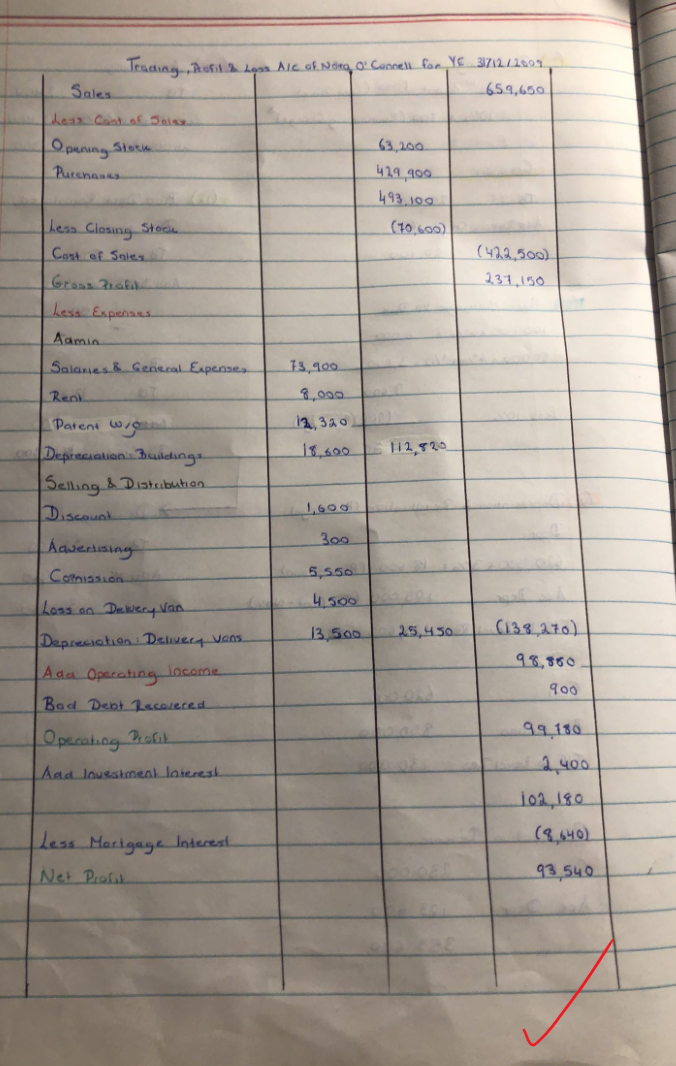 Trading, Profit & Loss A/C of Nora O'Connell for YE 31/12/2009
Sales 659,650
Less Cost of Sales
Opening Stock 63,200
Purchases 429,900
493,100
Less Closing Stock (70,600)
Cost of Sales (422,500)
Gross Profit 237,150
Less Expenses
Admin
Salaries & General Expenses 73,900
Rent 8,000
Patent w/o 12,320
Depreciation: Buildings 18,600 112,820
Selling & Distribution
Discount 1,600
Advertising 300
Comission 5,550
Loss on Delivery Van 4,500
Depreciation: Delivery Vans 13,500 25,450 (138,270)
98,880
Add Operating Income
Bad Debt Recovered 900
Operating Profit 99,780
Add Investment Interest 2,400
102,180
Less Mortgage Interest (8,640)
Net Profit 93,540